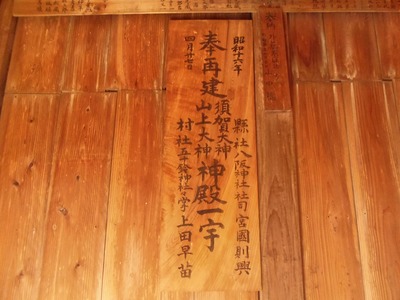 昭和十六年
四月廿七日
奉再建
須賀大神
山上大神
神殿一宇
縣社八阪神社社司 宮國則興
村社五十發神社々掌 上田早苗